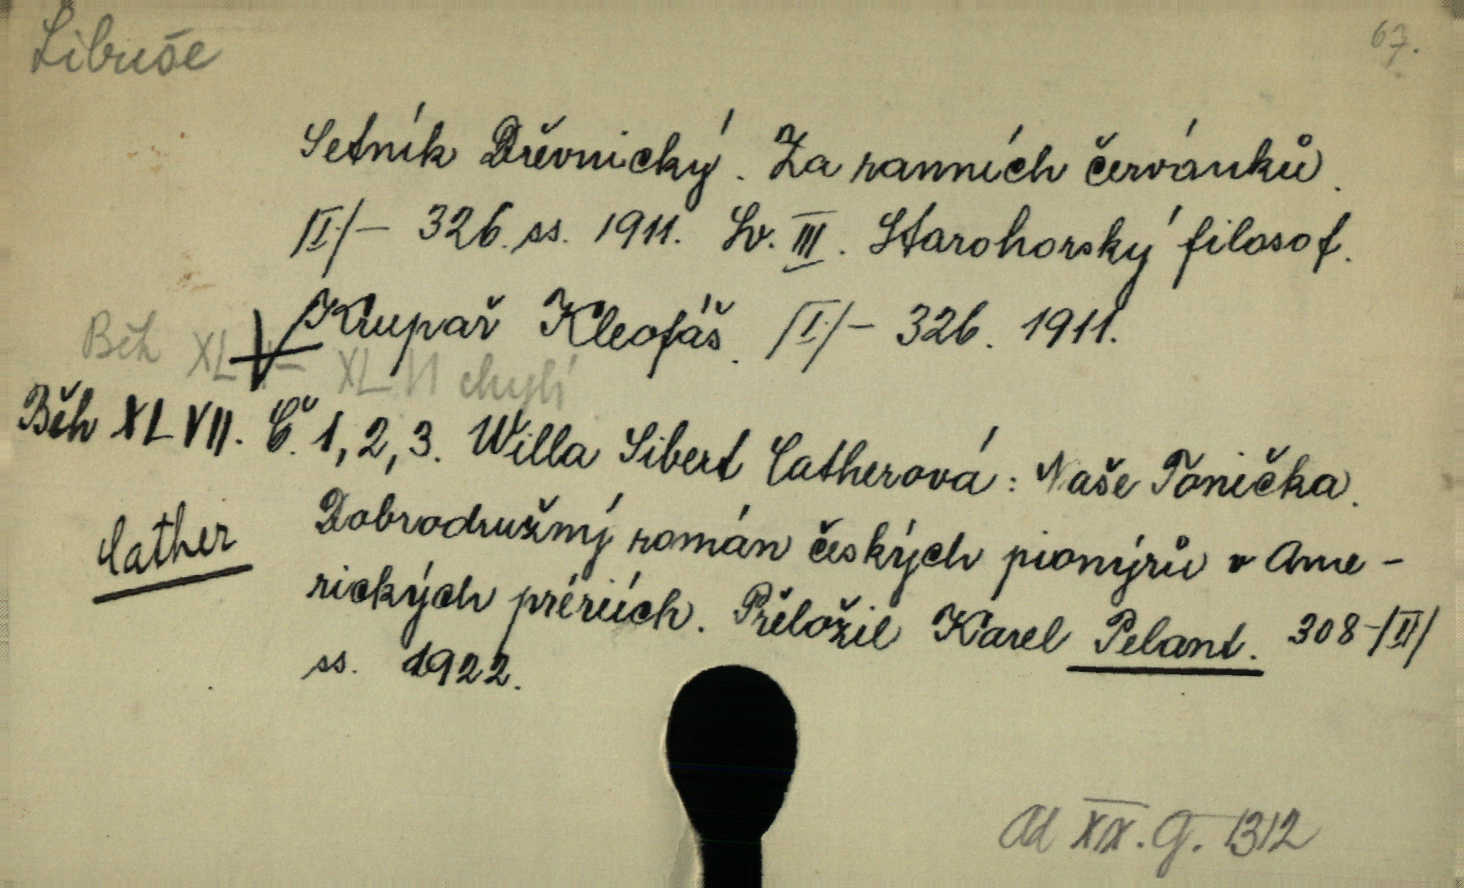 Libuše
67.
Setník Dřevnický. Za ranních červánků.
/II/ – 326. ss. 1911. Sv. III. Starohorský filosof.
Krupař Kleofáš. /I/ – 326. 1911.
Běh XLV – XLVI chybí
Běh XLVII. Č. 1, 2, 3. Willa Sibert Catherová: Naše Tonička.
Cather
Dobrodružný román českých pionýrů v Ame-
rických prériích. Přeložil Karel Pelant. 308 – /II/
ss. 1922.
Ad XIX. G. 1312